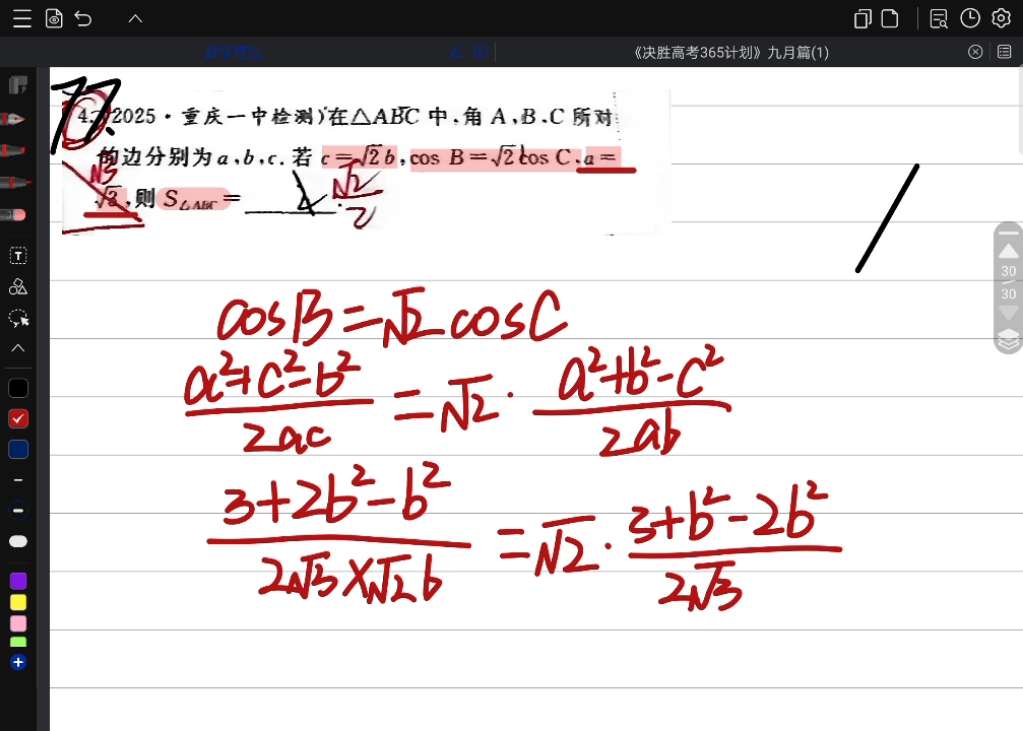 《决胜高考365计划》九月篇(1)
77.
4. (2025·重庆一中检测)在△ABC 中,角 A,B,C 所对
的边分别为 a,b,c. 若 c=√2 b, cos B=√2 cos C, a=
√3
√3, 则 S△ABC=
√2/2
cosB=√2 cosC
(a²+c²-b²)/(2ac) = √2 · (a²+b²-c²)/(2ab)
(3+2b²-b²)/(2√3×√2b) = √2 · (3+b²-2b²)/(2√3)
T
30
30